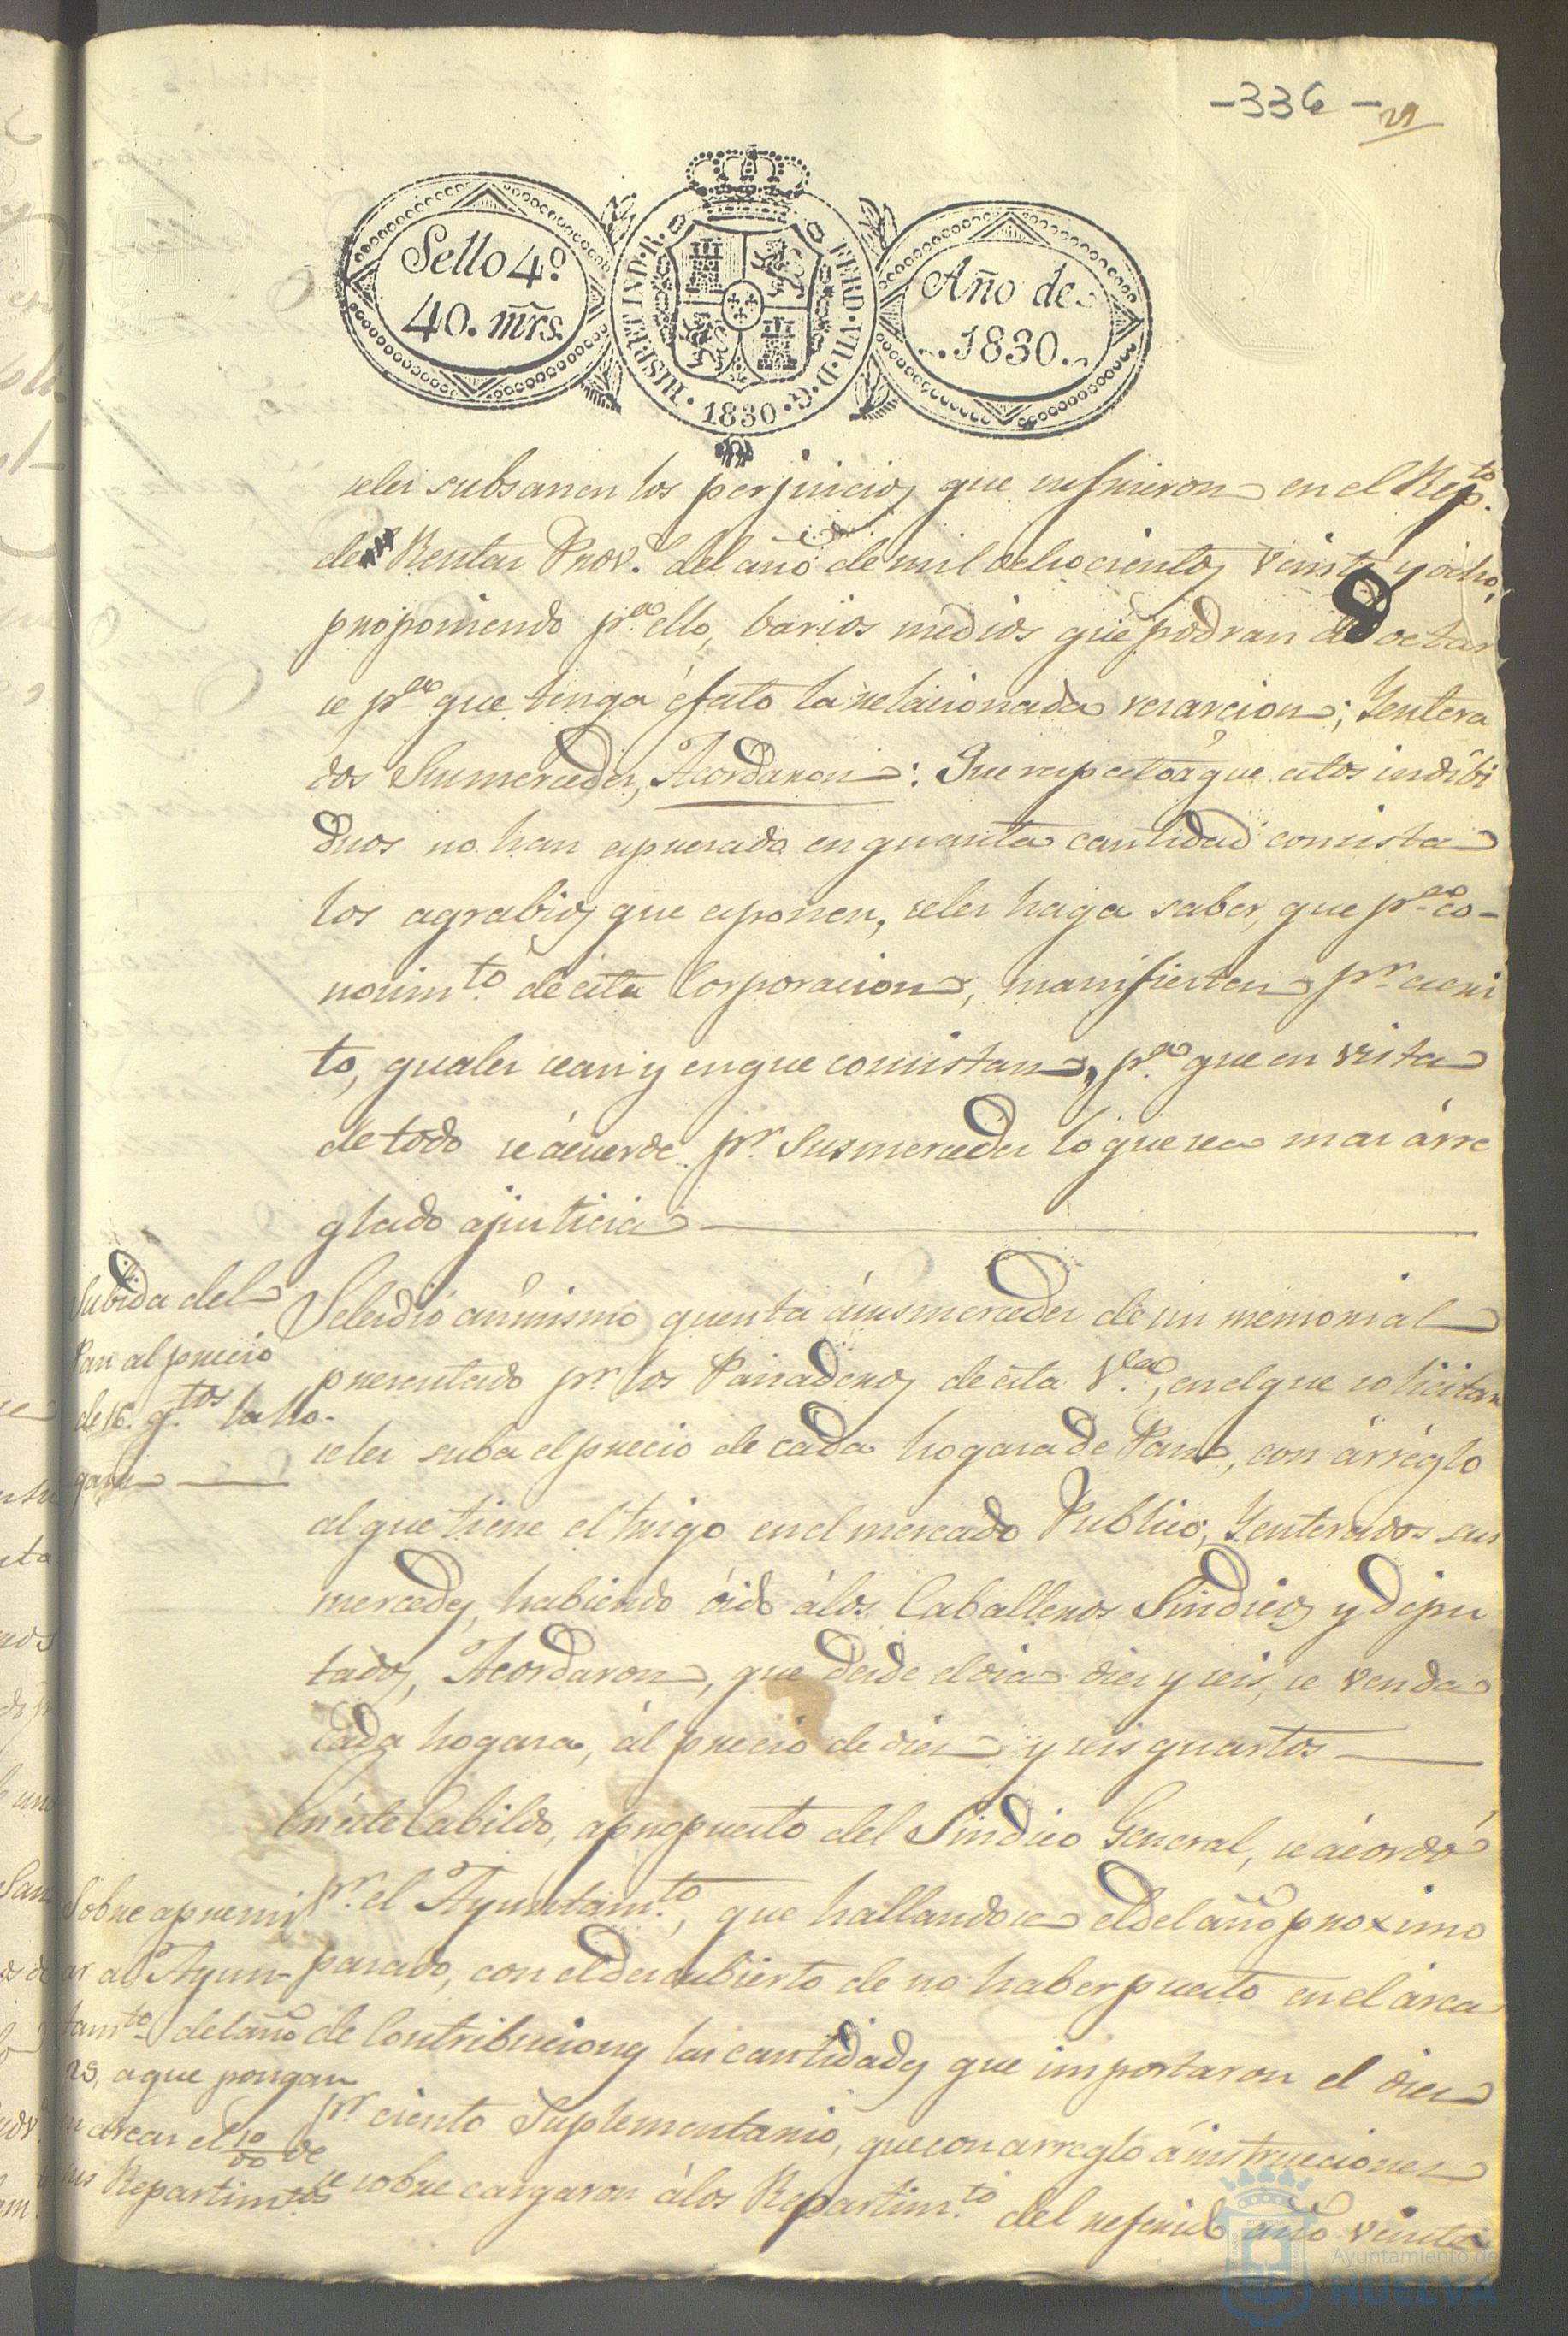 -336- 29
Sello 4º
40. mrs.
HISPET IND. R. FERD. VII. D. G.
1830
Año de
1830.
seles subsanen los perjuicios que sufrieron en el Rep.to
de Rentas Prov.s del año de mil ochocientos veinte y ocho,
proponiendo p.a ello, barios medios que podran adoctar
se p.a que tenga éfecto la relacionada resarcion; Yentera
dos Susmercedes, Acordaron: Que respecto á que estos indibi
duos no han espresado en quanta cantidad consista
los agrabios que esponen, seles haga saber, que p.a co-
nosim.to de ésta Corporacion, manifiesten p.r escri
to, quales sean y en que consistan, p.a que en vista
de todo se ácuerde p.r Susmercedes lo que sea mas árre
glado ajusticia
Subida del
Pan al precio
de 16. q.tos la ho-
gasa
Seles dió asimismo quenta ásusmercedes de un memorial
presentado p.r los Panaderos de ésta V.la, en el que solicitan
seles suba el precio de cada hogasa de Pan, con árreglo
al que tiene el trigo en el mercado Publico; Yenterados sus
mercedes, habiendo óido álos Caballeros Sindicos y dipu
tados, Acordaron, que desde el dia dies y seis, se venda
Cada hogasa, ál precio de dies y seis quartos
En éste Cabildo, apropuesto del Sindico General, se ácordó
Sobre apremi
ar al Ayun-
tam.to del año
29, a que pongan
en arcas el 10 %0 de
sus Repartim.tos
p.r el Ayuntam.to, que hallandose el del año proximo
pasado, con el descubierto de no haber puesto en el arca
de Contribuciones las cantidades que importaron el dies
p.r ciento Suplementario, que con arreglo á instrucciones
se sobrecargaron álos Repartim.to del referido año veinte
Ayuntamiento de
HUELVA